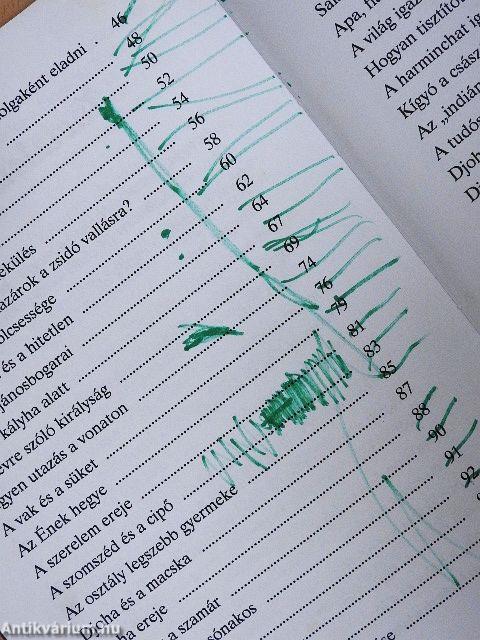 olgaként eladni . 46
48
50
52
54
56
ekülés 58
azárok a zsidó vallásra? 60
ölcsessége 62
és a hitetlen 64
jánosbogarai 67
kályha alatt 69
evre szóló királyság 74
gyen utazás a vonaton 76
A vak és a süket 79
Az Ének hegye 81
A szerelem ereje 83
A szomszéd és a cipő 85
Az osztály legszebb gyermeke 87
oha és a macska 88
ereje 90
a szamár 91
sónakos 92
Apa,
A világ igaz
Hogyan tisztíto
A harminchat ig
Kígyó a császá
Az „indián
A tudós
Djoh
Antikvárium.hu